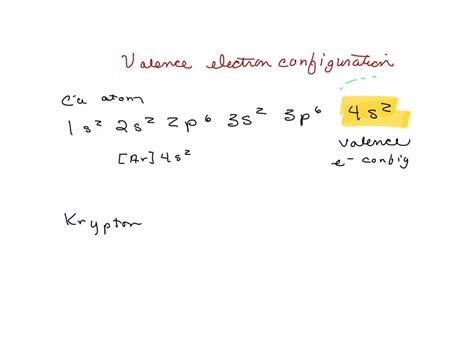 Valence electron configuration
Ca atom
1s² 2s² 2p⁶ 3s² 3p⁶ 4s²
[Ar] 4s²
valence
e⁻ config
Krypton